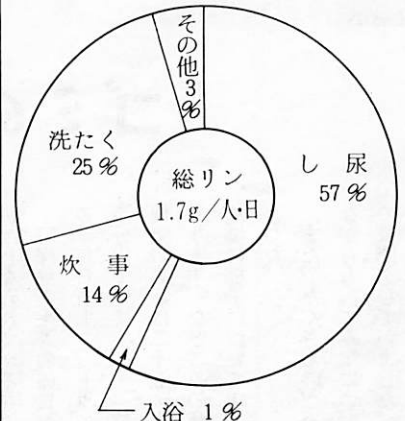 その他3%
洗たく
25%
総リン
1.7g／人・日
し尿
57%
炊事
14%
入浴 1%